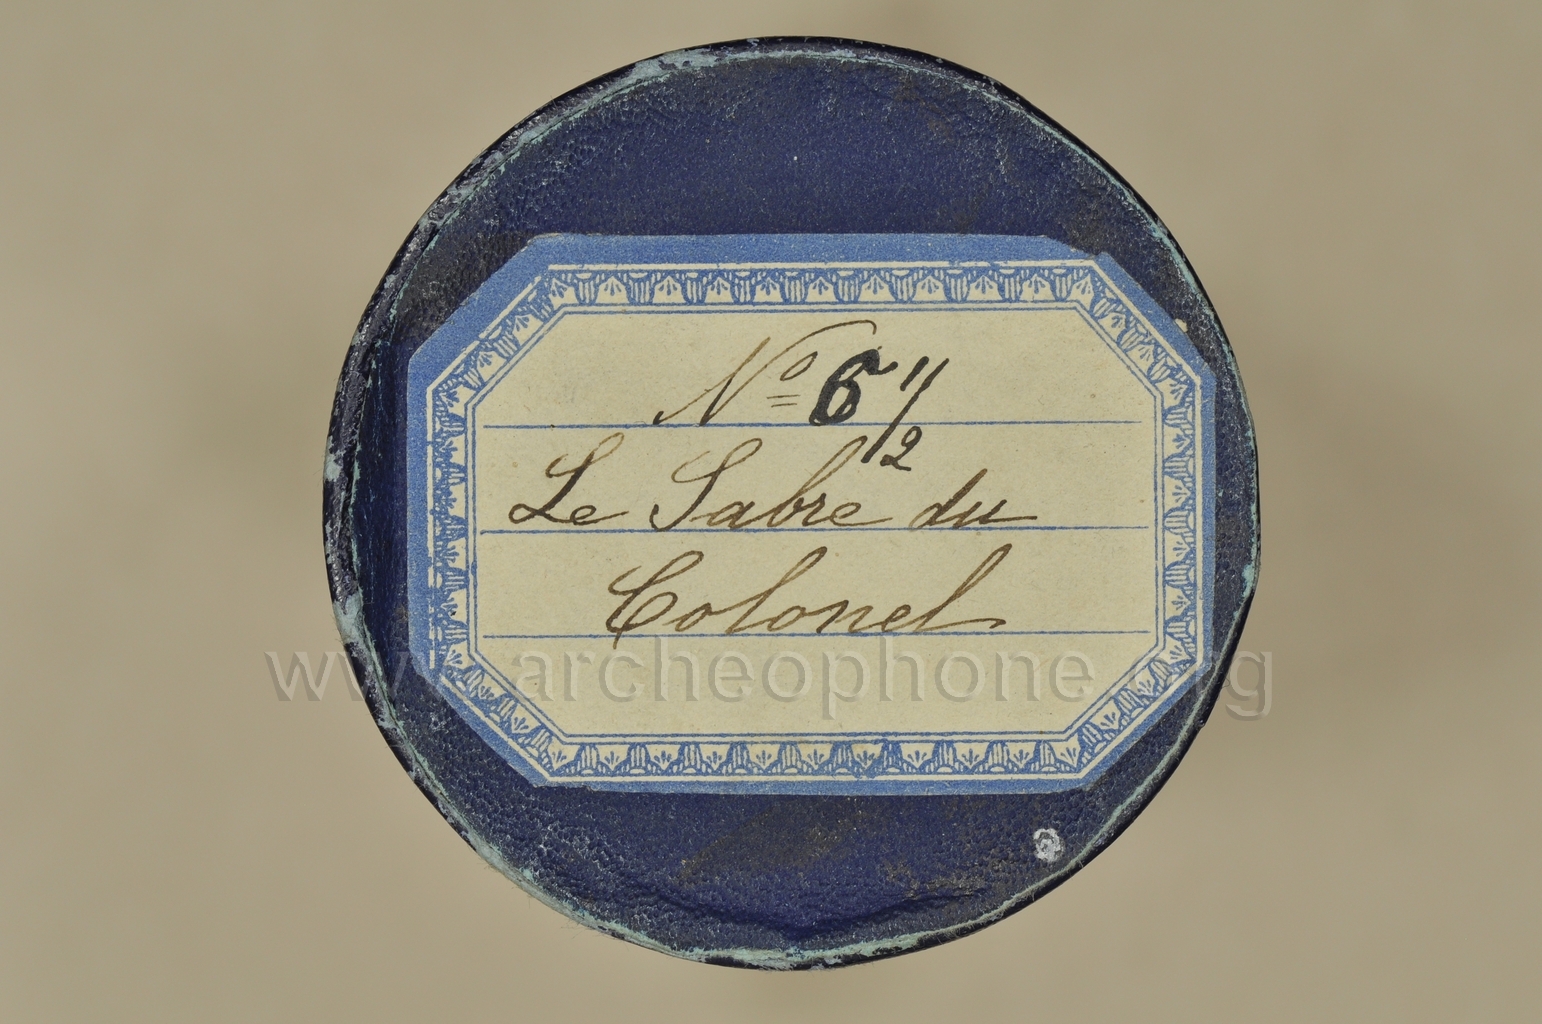 Nº 6 1/2
Le Sabre du
Colonel
www.archeophone.org